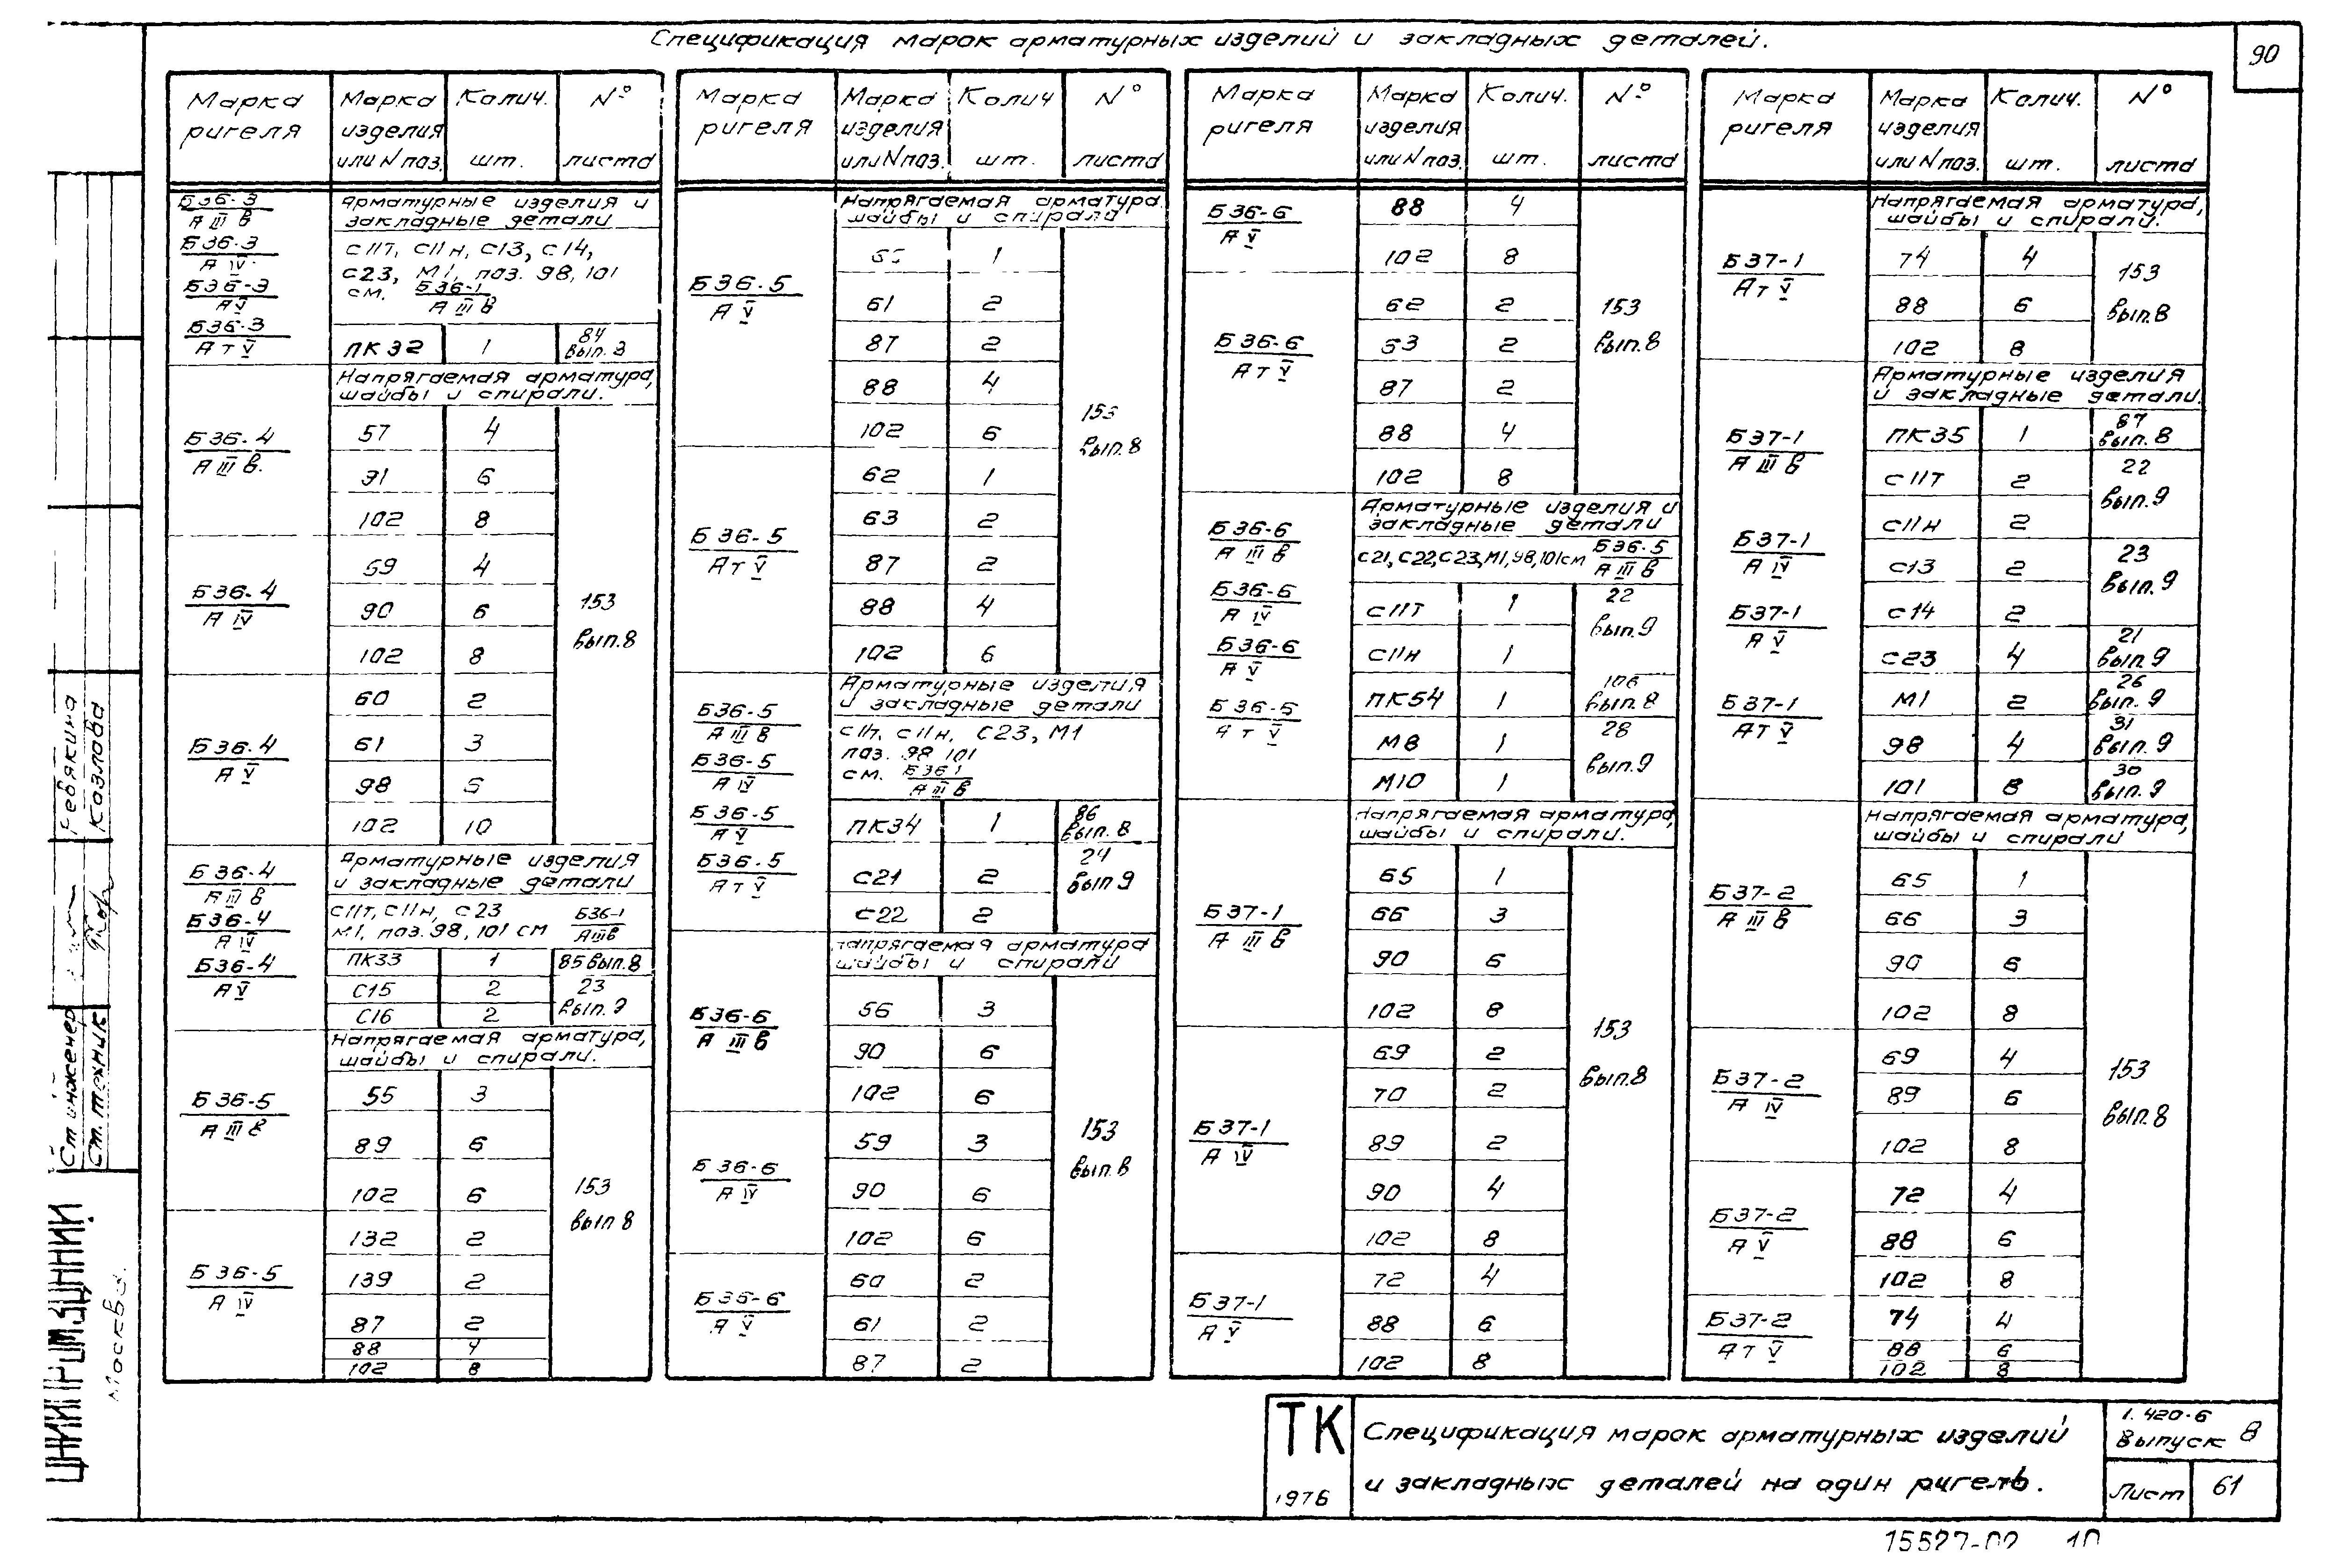 Спецификация марок арматурных изделий и закладных деталей.
90
Марка ригеля | Марка изделия или N поз. | Колич. шт. | № листа
Б36-3 А III в
Б36-3 А IV
Б36-3 А V
Б36-3 Ат V
Арматурные изделия и
закладные детали
с11т, с11н, с13, с14,
с23, М1, поз. 98, 101
см. Б36-1 А III в
ПК32 | 1 | 84 вып. 8
Напрягаемая арматура,
шайбы и спирали.
Б36-4 А III в.
57 | 4
91 | 6
102 | 8
Б36-4 А IV
59 | 4
90 | 6
102 | 8
153 вып.8
Б36-4 А V
60 | 2
61 | 3
98 | 5
102 | 10
Б36-4 А III в
Б36-4 А IV
Б36-4 А V
Арматурные изделия
и закладные детали
с11т, с11н, с23
М1, поз. 98, 101 см Б36-1 АIIIв
ПК33 | 1 | 85 вып.8
С15 | 2 | 23 вып. 9
С16 | 2
Напрягаемая арматура,
шайбы и спирали.
Б36-5 А III в
55 | 3
89 | 6
102 | 6
153 вып 8
Б36-5 А IV
132 | 2
139 | 2
87 | 2
88 | 4
102 | 8
Марка ригеля | Марка изделия или N поз. | Колич шт. | № листа
Напрягаемая арматура
шайбы и спирали
Б36-5 А V
1
61 | 2
87 | 2
88 | 4
102 | 6
153 вып. 8
Б36-5 Ат V
62 | 1
63 | 2
87 | 2
88 | 4
102 | 6
Б36-5 А III в
Б36-5 А IV
Б36-5 А V
Б36-5 Ат V
Арматурные изделия
и закладные детали
с11т, с11н, С23, М1
поз. 98 101
см. Б36 1 А III в
ПК34 | 1 | 86 вып. 8
С21 | 2 | 24 вып 9
С22 | 2
Напрягаемая арматура
шайбы и спирали
Б36-6 А III в
56 | 3
90 | 6
102 | 6
Б36-6 А IV
59 | 3
90 | 6
102 | 6
153 вып. 8
Б36-6 А V
60 | 2
61 | 2
87 | 2
Марка ригеля | Марка изделия или N поз. | Колич. шт. | № листа
Б36-6 А V
88 | 4
102 | 8
Б36-6 Ат V
62 | 2
63 | 2
87 | 2
88 | 4
102 | 8
153 вып. 8
Б36-6 А III в
Б36-6 А IV
Б36-6 А V
Б36-6 Ат V
Арматурные изделия и
закладные детали
С21, С22, С23, М1, 98, 101 см Б36-5 А III в
с11т | 1 | 22 вып. 9
с11н | 1
ПК54 | 1 | 106 вып. 8
М8 | 1 | 28 вып. 9
М10 | 1
Напрягаемая арматура,
шайбы и спирали.
Б37-1 А III в
65 | 1
66 | 3
90 | 6
102 | 8
Б37-1 А IV
69 | 2
70 | 2
89 | 2
90 | 4
102 | 8
153 вып.8
Б37-1 А V
72 | 4
88 | 6
102 | 8
Марка ригеля | Марка изделия или N поз. | Колич. шт. | № листа
Напрягаемая арматура,
шайбы и спирали.
Б37-1 Ат V
74 | 4
88 | 6
102 | 8
153 вып.8
Б37-1 А III в
Б37-1 А IV
Б37-1 А V
Б37-1 Ат V
Арматурные изделия
и закладные детали.
ПК35 | 1 | 87 вып. 8
с11т | 2 | 22 вып. 9
с11н | 2
с13 | 2 | 23 вып. 9
с14 | 2
с23 | 4 | 21 вып 9
М1 | 2 | 26 вып. 9
98 | 4 | 31 вып. 9
101 | 8 | 30 вып. 9
Напрягаемая арматура,
шайбы и спирали
Б37-2 А III в
65 | 1
66 | 3
90 | 6
102 | 8
Б37-2 А IV
69 | 4
89 | 6
102 | 8
153 вып.8
Б37-2 А V
72 | 4
88 | 6
102 | 8
Б37-2 Ат V
74 | 4
88 | 6
102 | 8
Ст инженер Ревякина
Ст. техник Козлова
ЦНИИПРОМЗДАНИЙ
Москва.
ТК
1976
Спецификация марок арматурных изделий
и закладных деталей на один ригель.
1.420-6
Выпуск 8
Лист 61
15527-02 10